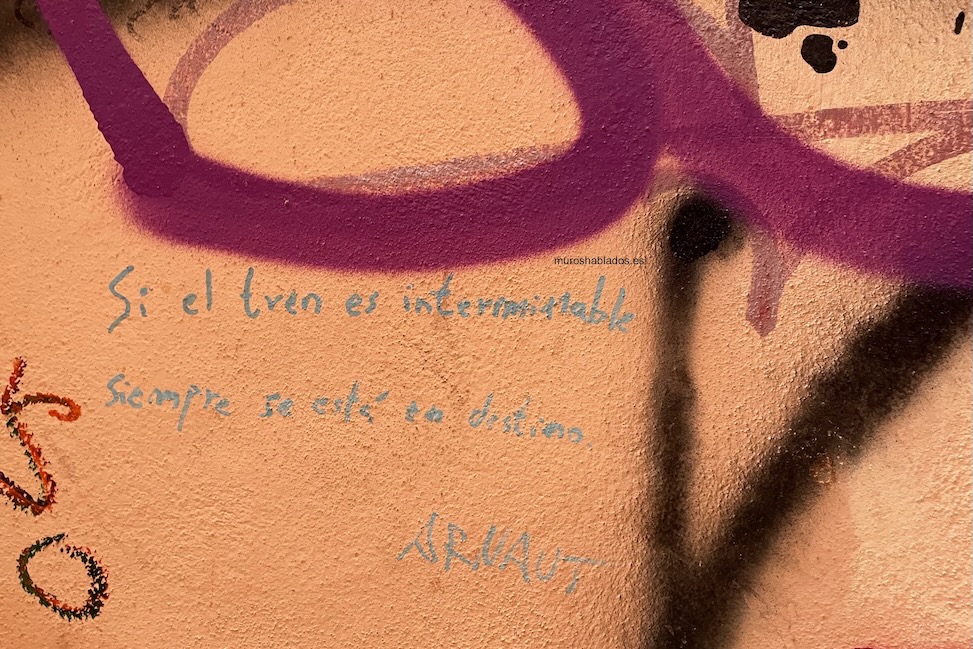 muroshablados.es
Si el tren es interminable
siempre se está en destino.
ARNAUT